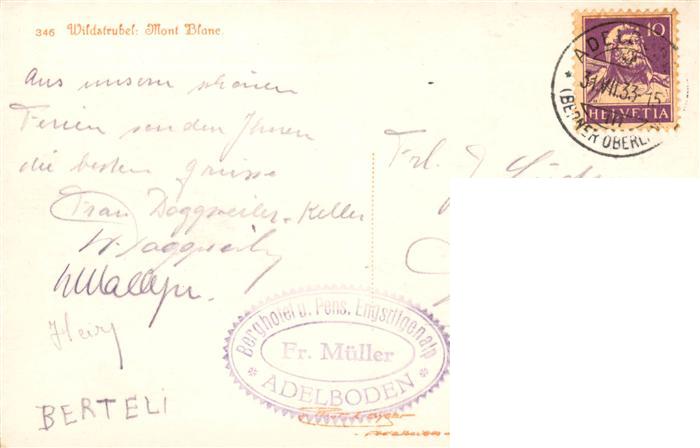 346 Wildstrubel: Mont Blanc
Aus unsern schönen
Ferien senden Ihnen
die besten Grüsse
Frau Doggweiler-Keller
W. Doggweiler
BERTELI
10
HELVETIA
ADELBODEN
31.VII.33-15
(BERNER OBERL.)
Frl.
Berghotel u. Pens. Engstligenalp
Fr. Müller
* ADELBODEN *